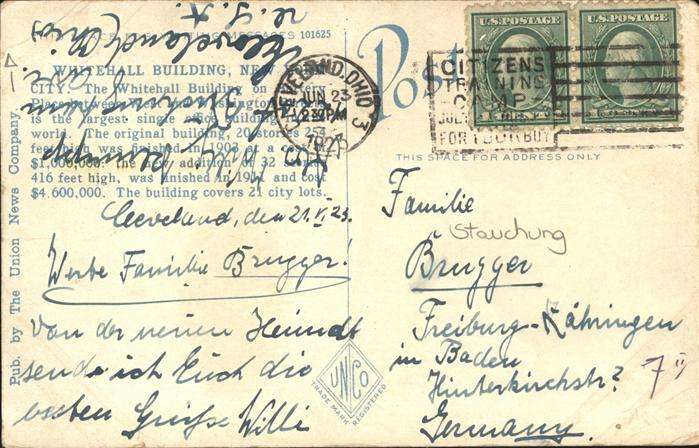 THIS SPACE FOR WRITING MESSAGES 101625
WHITEHALL BUILDING, NEW
CITY. The Whitehall Building on
Place
is the largest single
world. The original building, 20 stories 254
feet high was finished in 1903 at a cost
$1,000,000. The addition of 32
416 feet high, was finished in 1911 and cost
$4.600,000. The building covers 21 city lots.
Pub. by The Union News Company.
Cleveland, Ohio
U.S.A.
Cleveland, den 21.VI.23.
Werte Familie Brugger!
Von der neuen Heimat
sende ich Euch die
besten Grüsse Willi
CLEVELAND, OHIO 3
JUN 23
PM
1923
CITIZENS
TRAINING
CAMP
FOR YOUR BOY
U.S. POSTAGE
U.S. POSTAGE
Post
THIS SPACE FOR ADDRESS ONLY
Familie
Stauchung
Brugger
Freiburg-Zähringen
in Baden
Hinterkirchstr. 7
Germany.
UNCO
TRADE MARK REGISTERED